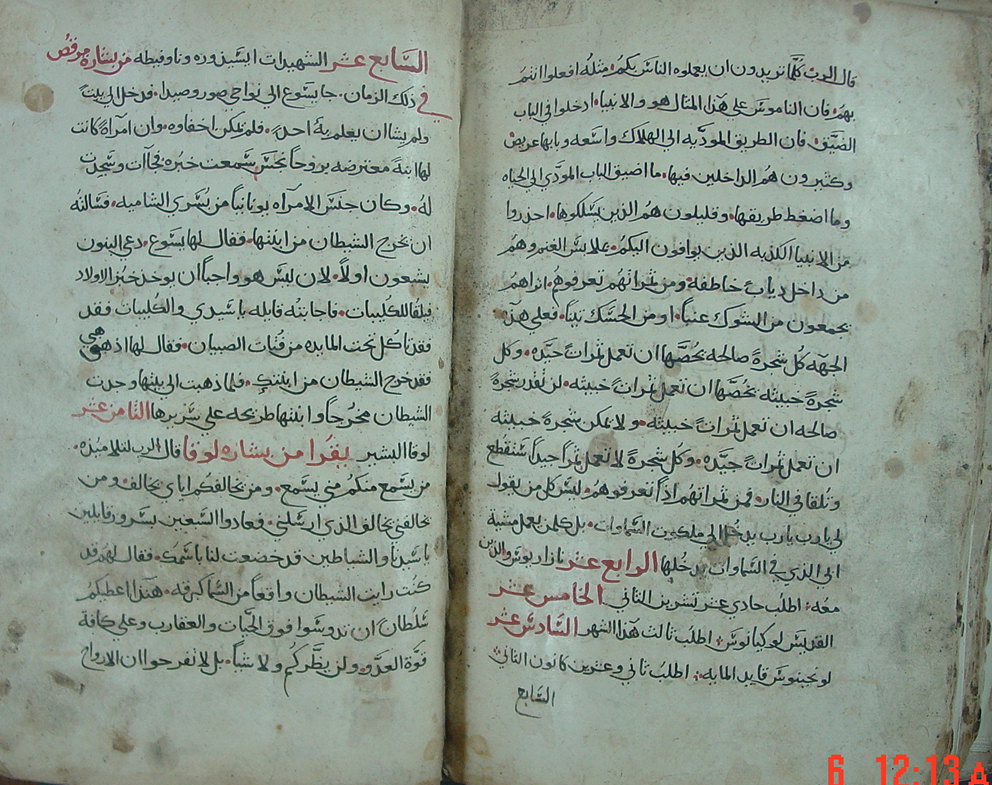 قال الرب كلما تريدون ان يعملوه الناس بكم مثله افعلوا انتم
بهم فان الناموس على هذا المثال هو والانبيا ادخلوا في الباب
الضيق فان الطريق الموديه الى الهلاك واسعه وبابها عريض
وكثيرون هم الداخلين فيها ما اضيق الباب المودي الى الحياه
وما اضغط طريقها وقليلون هم الذين يسلكوها احذروا
من الانبيا الكذبه الذين يوافون اليكم بملابس الغنم وهم
من داخل دياب خاطفه ومن ثمراتهم تعرفوهم اتراهم
يجمعون من الشوك عنباً او من الحسك تيناً فعلى هذه
الجهه كل شجرة صالحه يخصها ان تعمل ثمرات جيده وكل
شجرة خبيثه يخصها ان تعمل ثمرات خبيثه لن تقدر شجرة
صالحه ان تعمل ثمرات خبيثه ولا تمكن شجرة خبيثة
ان تعمل ثمرات جيده وكل شجرة لا تعمل ثمراً جيداً ستقطع
وتلقا في النار فمن ثمراتهم اذاً تعرفوهم ليس كل من يقول
لي يارب يارب يدخل الى ملكوت السماوات بل كلمن يعمل مشية
ابي الذي في السماوات يدخلها الرابع عشر نازاريوس والذين
معه اطلب حادي عشر تشرين الثاني الخامس عشر
القديس لوكيانوس اطلب ثالث هذا الشهر السادس عشر
لونجينوس قايد المايه اطلب ثاني وعشرين كانون الثاني
السابع
السابع عشر الشهيدات ايسيذوره وناوفيطه من بشارة مرقص
في ذلك الزمان جا يسوع الى نواحي صور وصيدا فدخل الى بيت
ولم يشا ان يعلم به احد فلم يمكن اخفاوه وان امرأة كانت
لها ابنة معترضه بروحاً نجس سمعت خبره فجآت وسجدت
له وكان جنس الامرآه يونانياً من يسرى الشاميه فسالته
ان يخرج الشيطان من ابنتها فقال لها يسوع دعي البنون
يشبعون اولاً لان ليس هو واجباً ان يوخذ خبز الاولاد
فيلقا للكليبات فاجابته قايله يا سيدي والكليبات فقد
فقد تاكل تحت المايده من فتات الصبيان فقال لها اذهبي
فقد خرج الشيطان من ابنتك فلما ذهبت الى بيتها وجدت
الشيطان مخرجاً وابنتها طريحه على سريرها الثامن عشر
لوقا البشير يقرا من بشاره لوقا قال الرب لتلاميذه
من يسمع منكم مني يسمع ومن يخالفكم اياي يخالف ومن
يخالفني يخالف الذي ارسلني فعادوا السبعين بسرور قايلين
يا سيدنا والشياطين قد خضعت لنا باسمك فقال لهم قد
كنت رايت الشيطان واقعاً من السما كبرقه هنذا اعطيكم
سلطان ان تدوسوا فوق الحيات والعقارب وعلى كافة
قوة العدو ولن يظركم ولا شياً بل لا تفرحوا ان الارواح
6 12:13